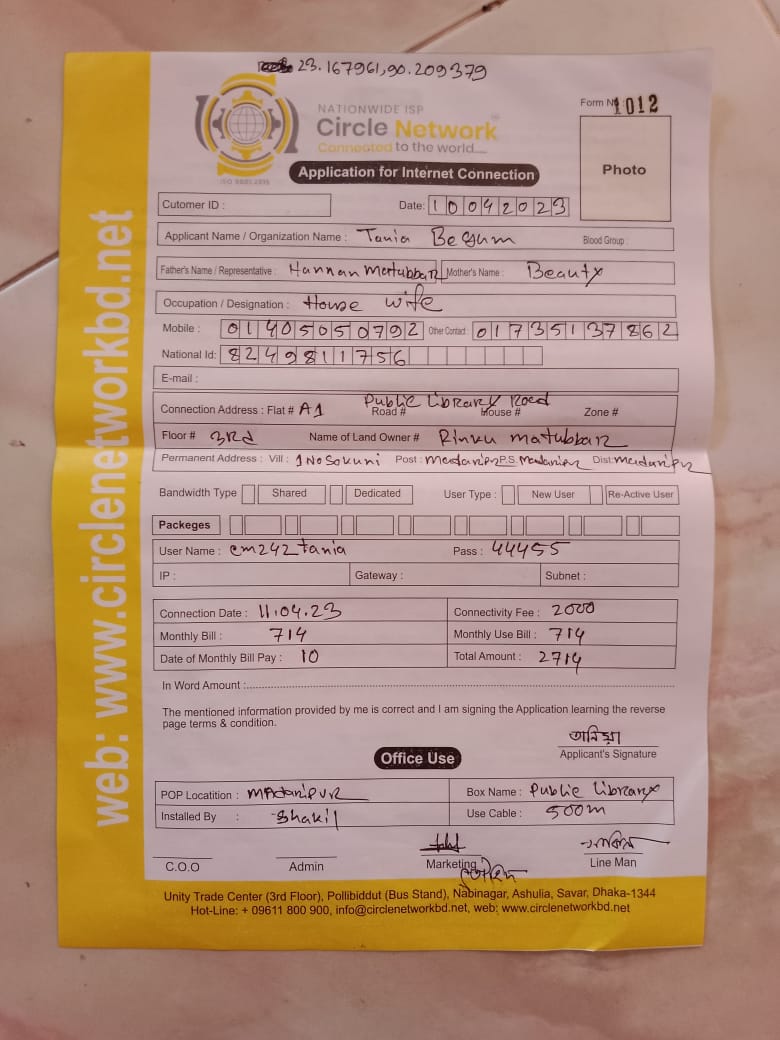 23.167961,90.209379
NATIONWIDE ISP
Circle Network
Connected to the world....
ISO 9001:2015
Form No 1012
Photo
Application for Internet Connection
Cutomer ID :
Date: 10042023
Applicant Name / Organization Name : Tania Begum Blood Group :
Father's Name / Representative : Hannan Matubbar Mother's Name : Beauty
Occupation / Designation : House wife
Mobile : 01405050792 Other Contact : 01735137862
National Id: 8249811756
E-mail :
Connection Address : Flat # A1 Public Library Road Road # House # Zone #
Floor # 3Rd Name of Land Owner # Rinku matubbar
Permanent Address : Vill : 1 No Sokuni Post : Madaripur P.S. Madaripur Dist: Madaripur
Bandwidth Type Shared Dedicated User Type : New User Re-Active User
Packeges
User Name : cm242tania Pass : 44455
IP : Gateway : Subnet :
Connection Date : 11.04.23 Connectivity Fee : 2000
Monthly Bill : 714 Monthly Use Bill : 714
Date of Monthly Bill Pay : 10 Total Amount : 2714
In Word Amount :
The mentioned information provided by me is correct and I am signing the Application learning the reverse
page terms & condition.
তানিয়া
Applicant's Signature
Office Use
POP Locatition : Madaripur Box Name : Public Library
Installed By : Shakil Use Cable : 500m
C.O.O Admin Marketing Line Man
Unity Trade Center (3rd Floor), Pollibiddut (Bus Stand), Nabinagar, Ashulia, Savar, Dhaka-1344
Hot-Line: + 09611 800 900, info@circlenetworkbd.net, web: www.circlenetworkbd.net
web: www.circlenetworkbd.net